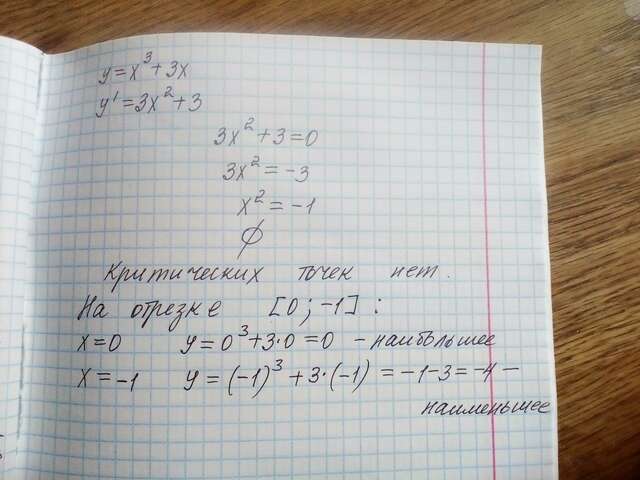 y=x³+3x
y'=3x²+3
3x²+3=0
3x²=-3
x²=-1
∅
Критических точек нет.
На отрезке [0;-1]:
x=0 y=0³+3·0=0 - наибольшее
x=-1 y=(-1)³+3·(-1)=-1-3=-4 -
наименьшее